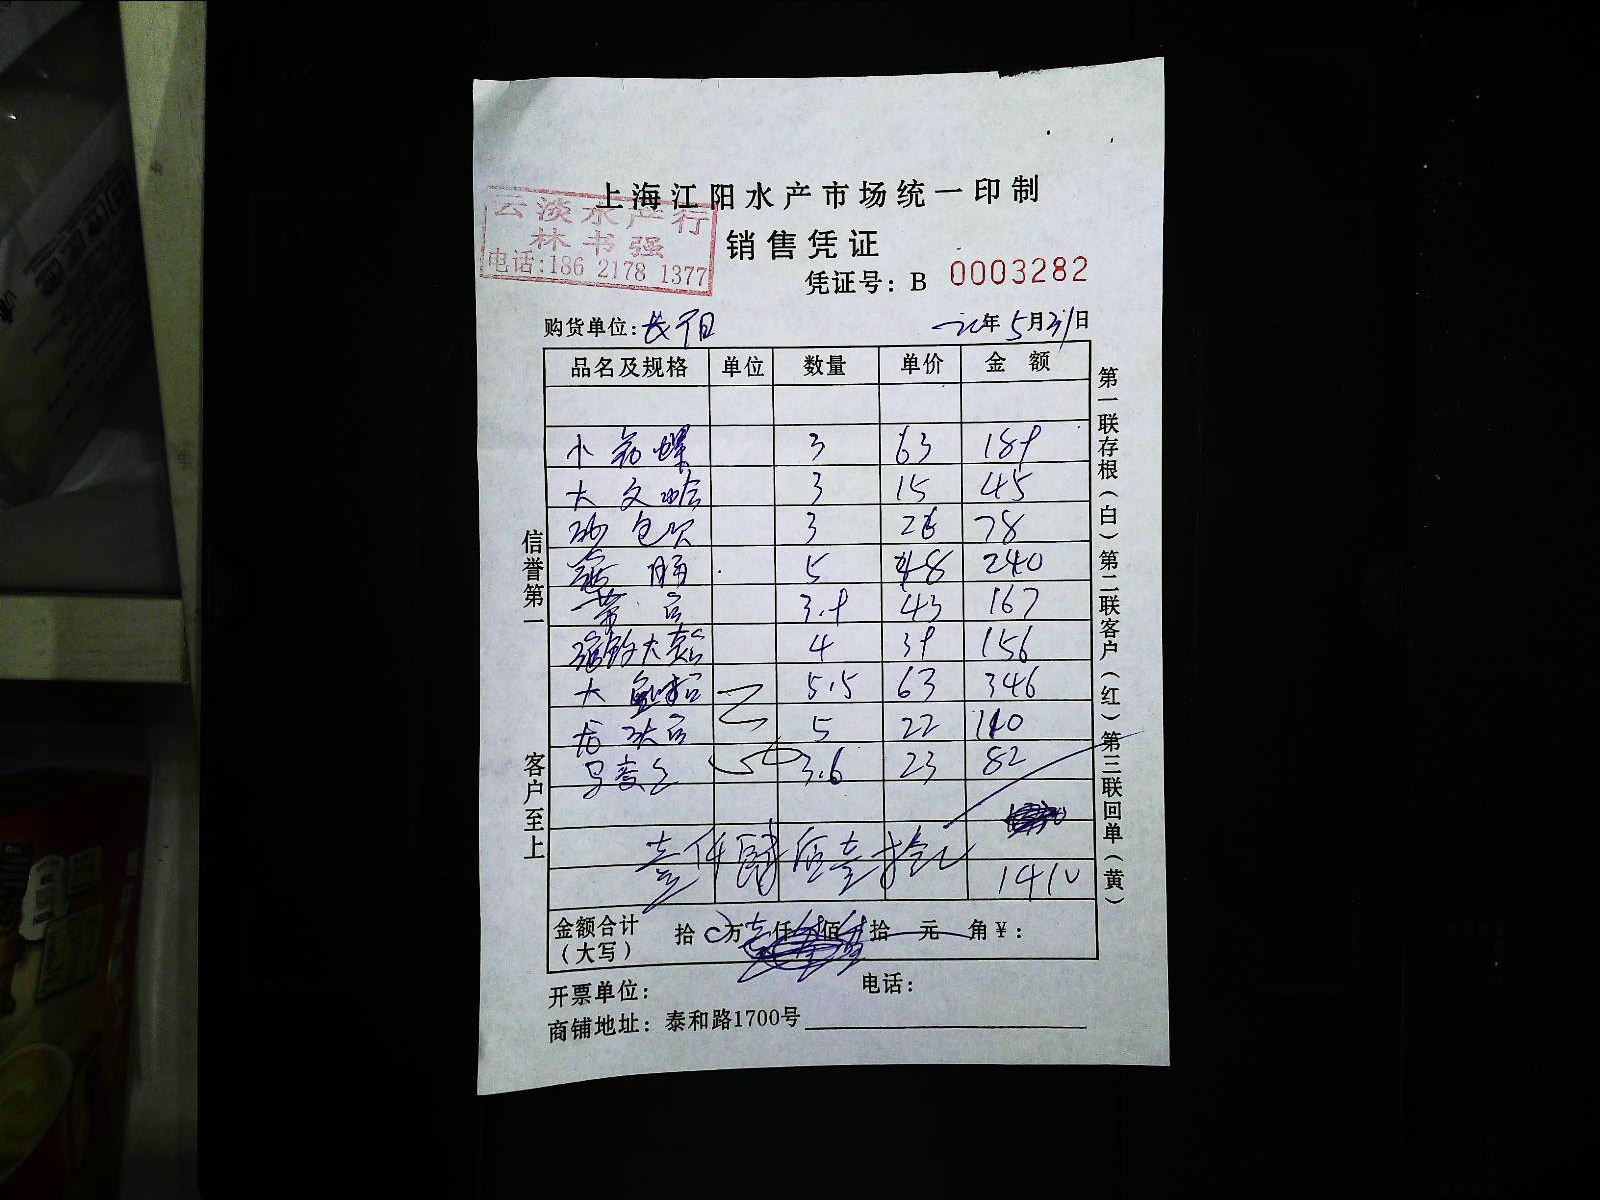 上海江阳水产市场统一印制
云淡水产行
林书强
电话:186 2178 1377
销售凭证
凭证号: B 0003282
购货单位: 年5月31日
品名及规格 单位 数量 单价 金额
小 螺 3 63 189
大文蛤 3 15 45
3 26 78
5 48 240
3.9 43 167
4 39 156
大 5.5 63 346
5 22 110
3.6 23 82
壹仟肆佰壹拾元
1410
金额合计(大写) 拾 万 仟 佰 拾 元 角 ¥:
开票单位: 电话:
商铺地址: 泰和路1700号
信誉第一
客户至上
第一联存根(白)第二联客户(红)第三联回单(黄)